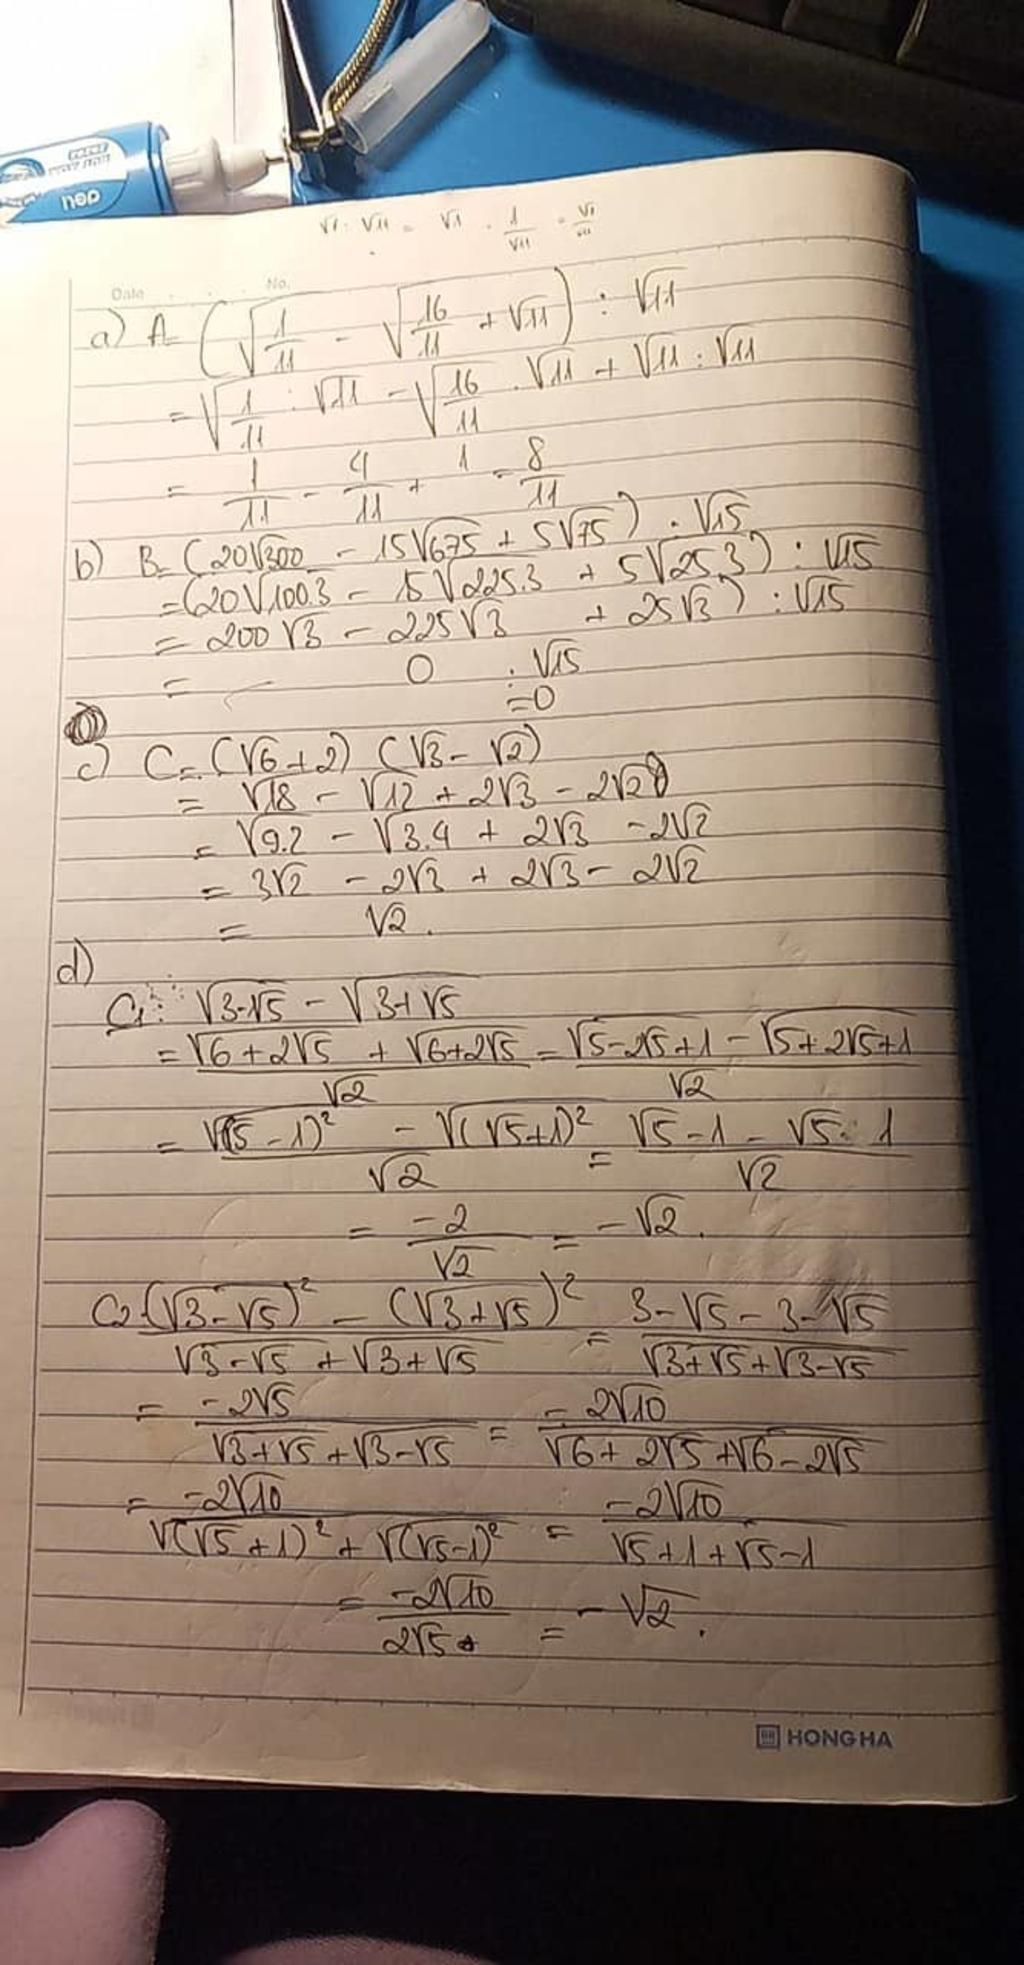 √1 : √11 = √1 . 1/√11 = √1/√11
Date No.
a) A = (√(1/11) - √(16/11) + √11) : √11
= √(1/11) : √11 - √(16/11) . √11 + √11 : √11
= 1/11 - 4/11 + 1 = 8/11
b) B = (20√300 - 15√675 + 5√75) : √15
= (20√100.3 - 15√225.3 + 5√25.3) : √15
= 200√3 - 225√3 + 25√3) : √15
= 0 : √15
= 0
c) C = (√6 + 2) (√3 - √2)
= √18 - √12 + 2√3 - 2√2
= √9.2 - √3.4 + 2√3 - 2√2
= 3√2 - 2√3 + 2√3 - 2√2
= √2.
d)
C1: √(3-√5) - √(3+√5)
= (√(6+2√5) + √(6+2√5))/√2 = (√(5-2√5+1) - √(5+2√5+1))/√2
= (√(√5-1)² - √(√5+1)²)/√2 = (√5-1-√5-1)/√2
= -2/√2 = -√2.
C2: ((√(3-√5))² - (√(3+√5))²)/(√(3-√5) + √(3+√5)) = (3-√5-3-√5)/(√(3+√5)+√(3-√5))
= -2√5/(√(3+√5)+√(3-√5)) = -2√10/(√(6+2√5)+√(6-2√5))
= -2√10/(√(√5+1)² + √(√5-1)²) = -2√10/(√5+1+√5-1)
= -2√10/2√5 = -√2.
HONG HA